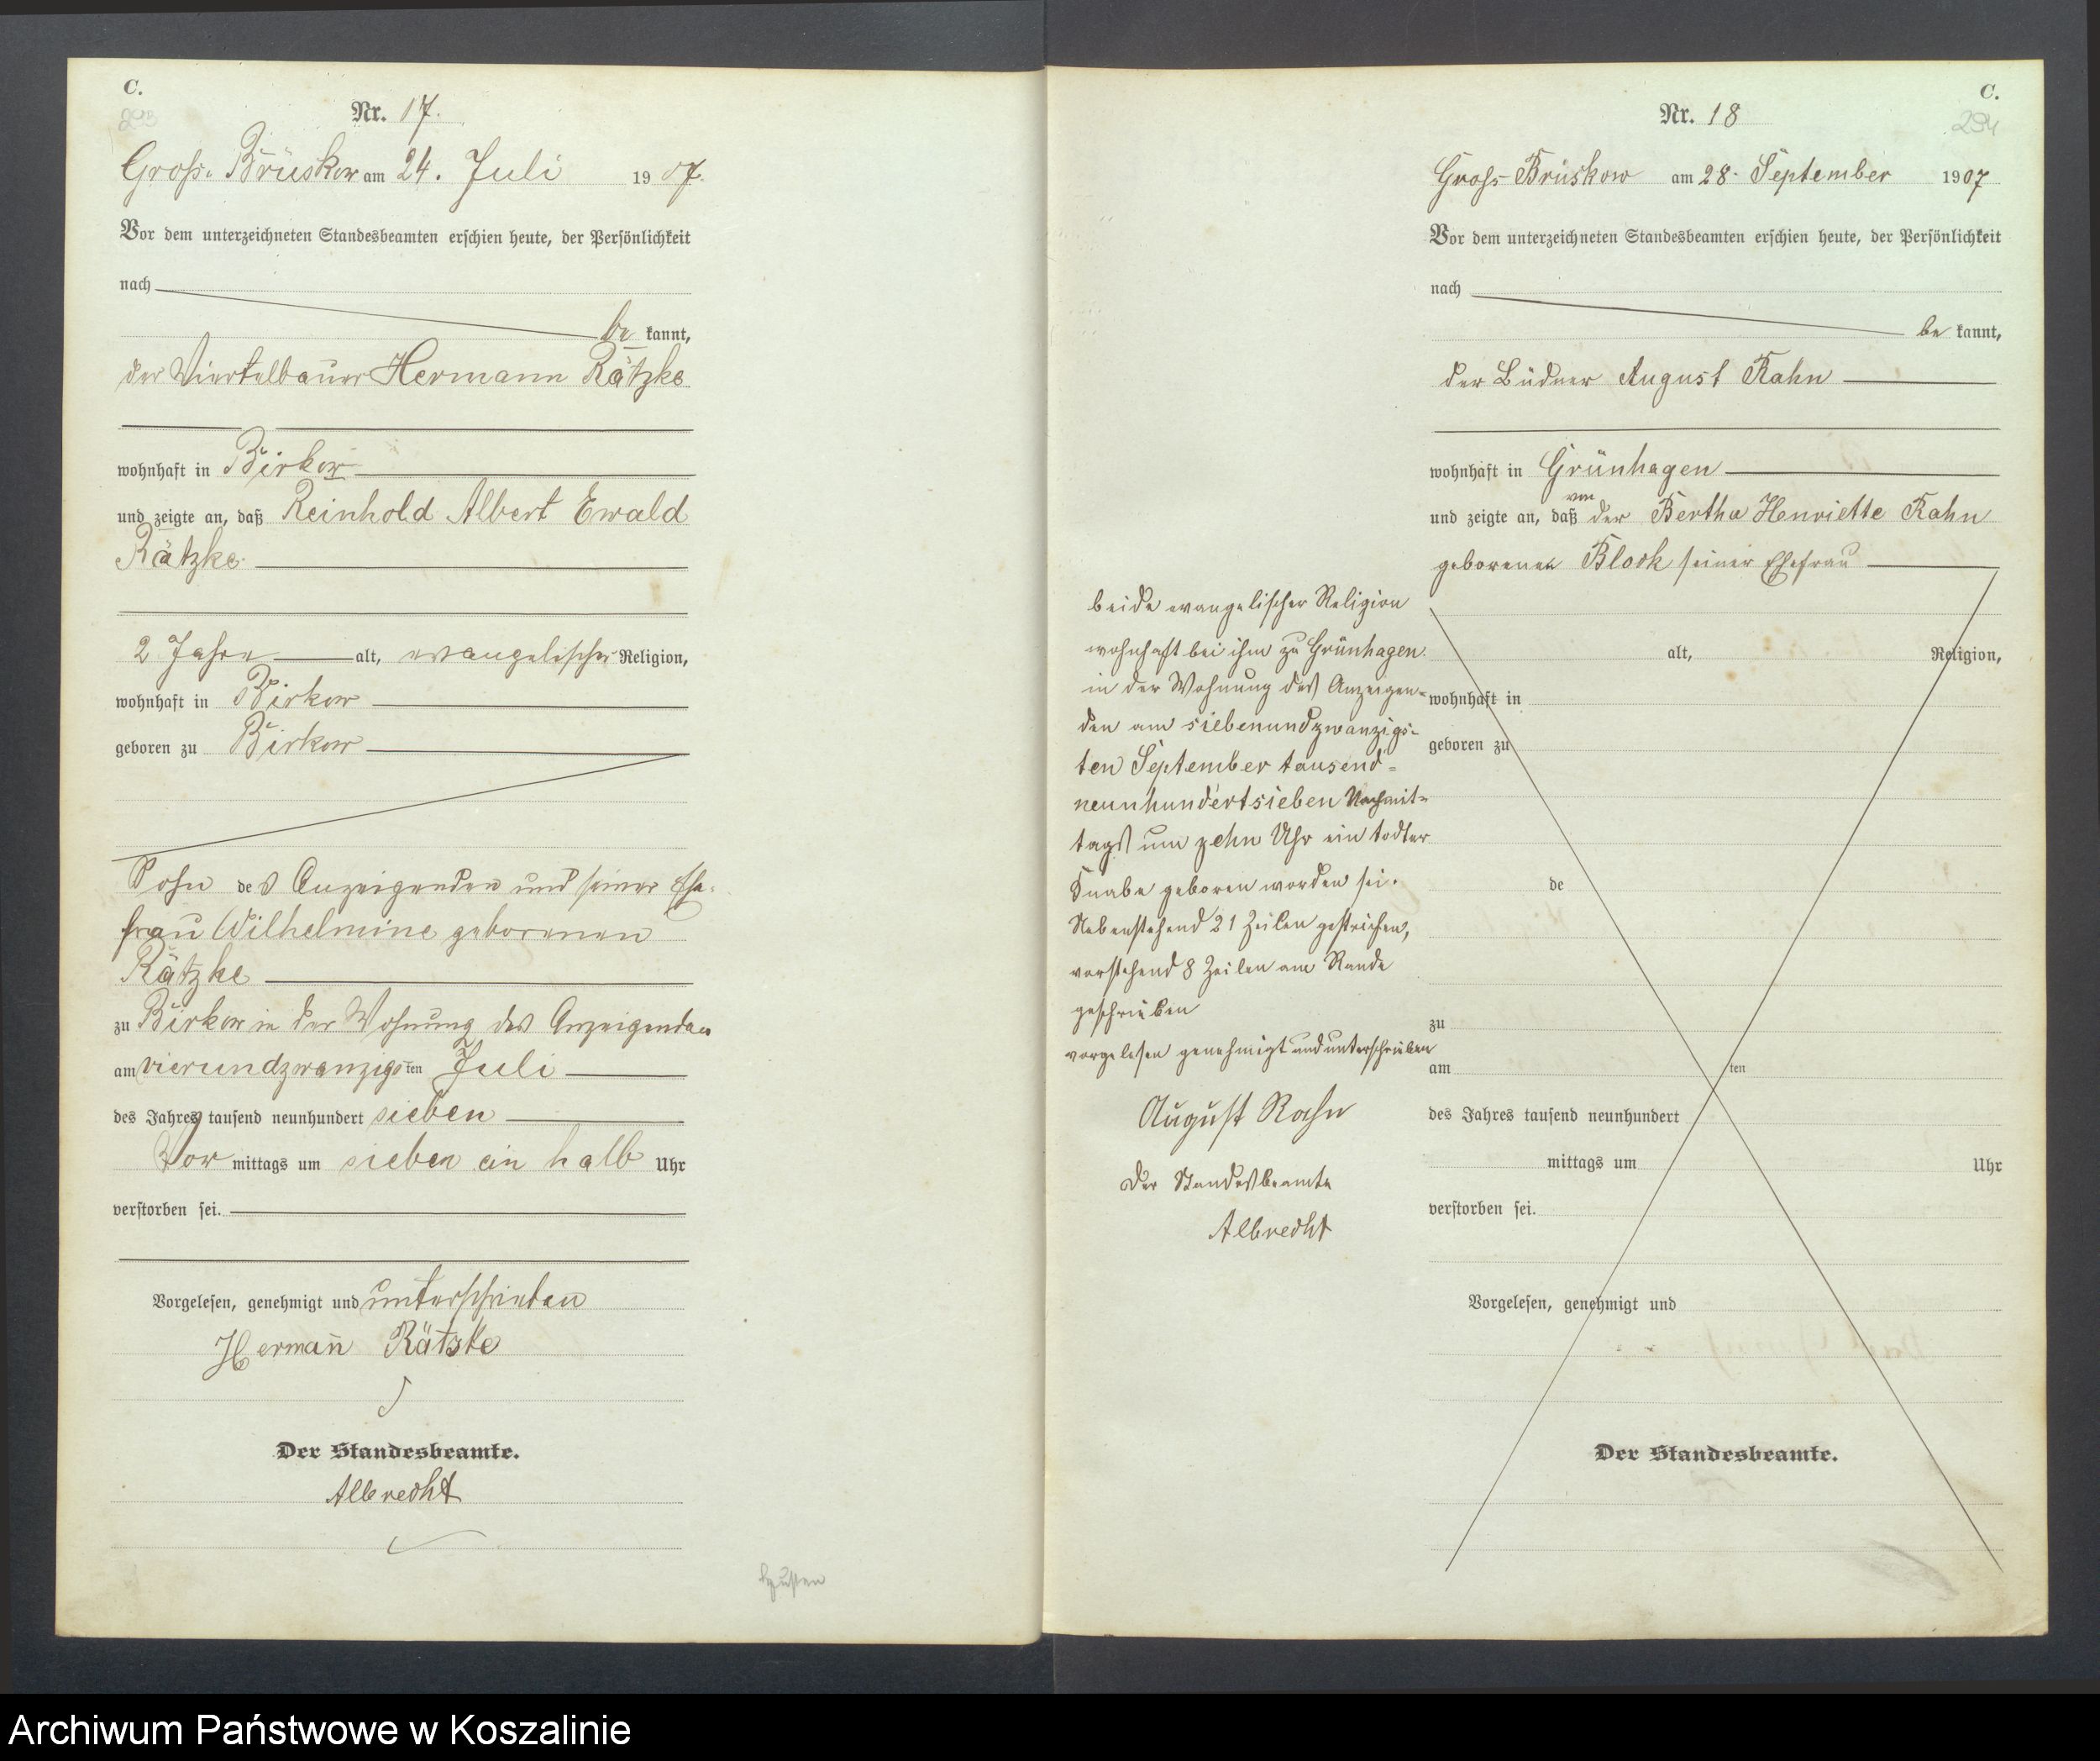 C.
293
Nr. 17.
Gross-Brüskow am 24. Juli 1907.
Vor dem unterzeichneten Standesbeamten erschien heute, der Persönlichkeit
nach
be kannt,
der Viertelbauer Hermann Rätzke
wohnhaft in Birkow
und zeigte an, daß Reinhold Albert Ewald
Rätzke
2 Jahre alt, evangelischer Religion,
wohnhaft in Birkow
geboren zu Birkow
Sohn des Anzeigenden und seiner Ehe-
frau Wilhelmine geborenen
Rätzke
zu Birkow in der Wohnung des Anzeigenden
am vierundzwanzigsten Juli
des Jahres tausend neunhundert sieben
Vor mittags um sieben ein halb Uhr
verstorben sei.
Vorgelesen, genehmigt und unterschrieben
Hermann Rätzke
Der Standesbeamte.
Albrecht
Husten
C.
294
Nr. 18
Gross-Brüskow am 28. September 1907
Vor dem unterzeichneten Standesbeamten erschien heute, der Persönlichkeit
nach
be kannt,
der Büdner August Rahn
wohnhaft in Grünhagen
und zeigte an, daß von der Bertha Henriette Rahn
geborenen Block seiner Ehefrau
beide evangelischer Religion
wohnhaft bei ihm zu Grünhagen
in der Wohnung des Anzeigen-
den am siebenundzwanzigs-
ten September tausend-
neunhundertsieben Nachmit-
tags um zehn Uhr ein todter
Knabe geboren worden sei.
Nebenstehend 21 Zeilen gestrichen,
vorstehend 8 Zeilen am Rande
geschrieben
vorgelesen genehmigt und unterschrieben
August Rahn
Der Standesbeamte
Albrecht
alt, Religion,
wohnhaft in
geboren zu
de
zu
am ten
des Jahres tausend neunhundert
mittags um Uhr
verstorben sei.
Vorgelesen, genehmigt und
Der Standesbeamte.
Archiwum Państwowe w Koszalinie